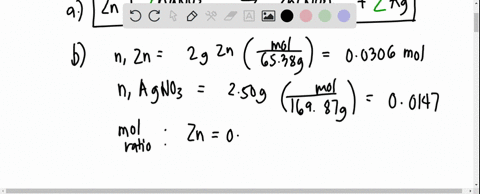 a) Zn
+ 2 Ag
b) n, Zn = 2g Zn ( mol / 65.38g ) = 0.0306 mol
n, AgNO3 = 2.50g ( mol / 169.87g ) = 0.0147
mol ratio : Zn = 0.